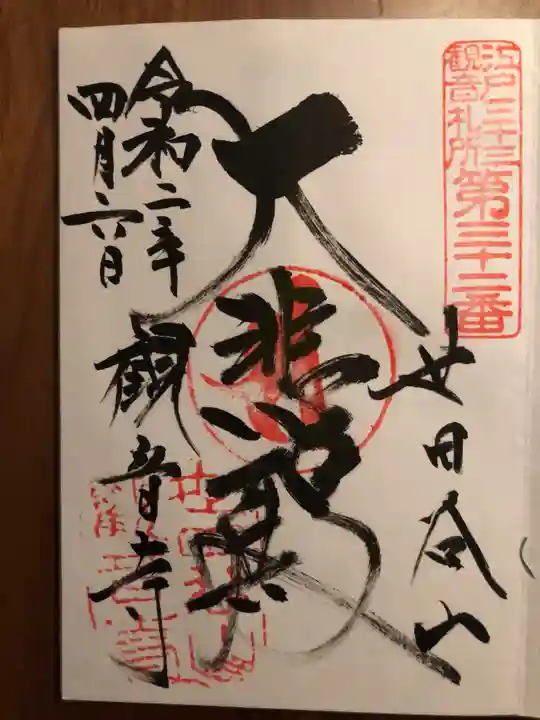 江戸三十三
観音札所
第三十二番
世田谷山
大悲殿
令和二年
四月六日
観音寺